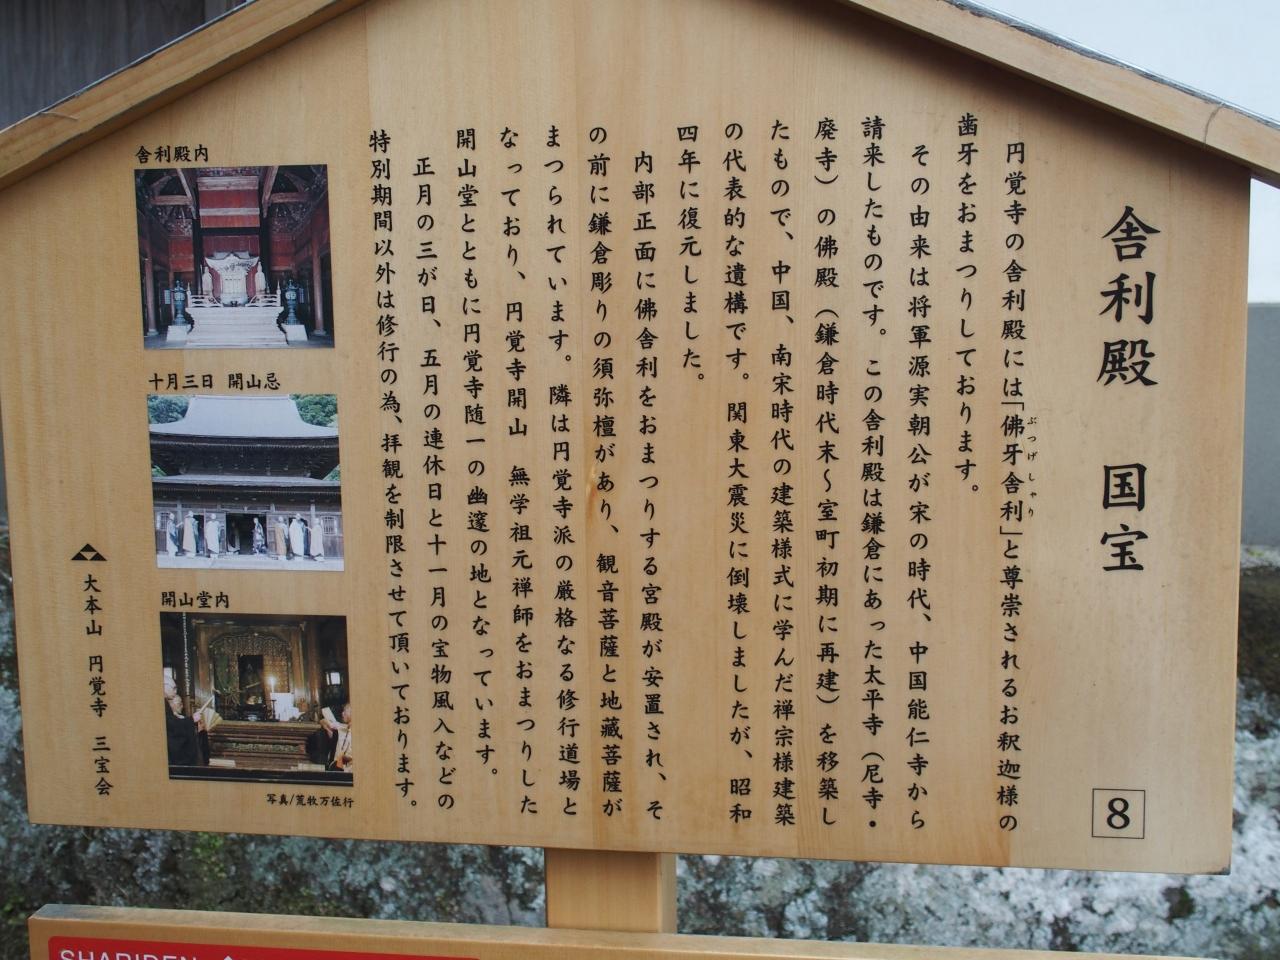 舎利殿 国宝
8
円覚寺の舎利殿には「佛牙舎利」と尊崇されるお釈迦様の
ぶつげしゃり
歯牙をおまつりしております。
その由来は将軍源実朝公が宋の時代、中国能仁寺から
請来したものです。この舎利殿は鎌倉にあった太平寺（尼寺・
廃寺）の佛殿（鎌倉時代末～室町初期に再建）を移築し
たもので、中国、南宋時代の建築様式に学んだ禅宗様建築
の代表的な遺構です。関東大震災に倒壊しましたが、昭和
四年に復元しました。
内部正面に佛舎利をおまつりする宮殿が安置され、そ
の前に鎌倉彫りの須弥壇があり、観音菩薩と地蔵菩薩が
まつられています。隣は円覚寺派の厳格なる修行道場と
なっており、円覚寺開山 無学祖元禅師をおまつりした
開山堂とともに円覚寺随一の幽邃の地となっています。
正月の三が日、五月の連休日と十一月の宝物風入などの
特別期間以外は修行の為、拝観を制限させて頂いております。
舎利殿内
十月三日 開山忌
開山堂内
写真/荒牧万佐行
大本山 円覚寺 三宝会
SHARIDEN